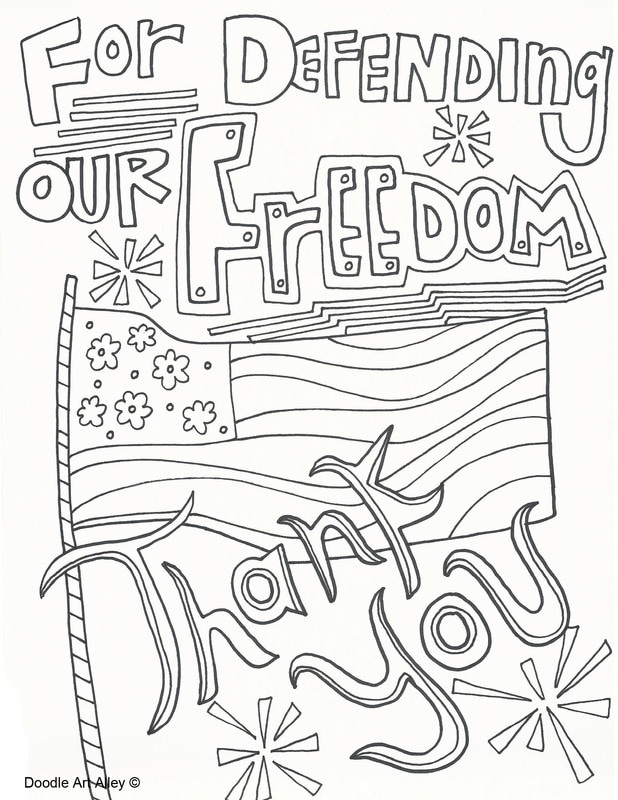 For DEFENDING
OUR FrEEDOM
Thank
you
Doodle Art Alley ©